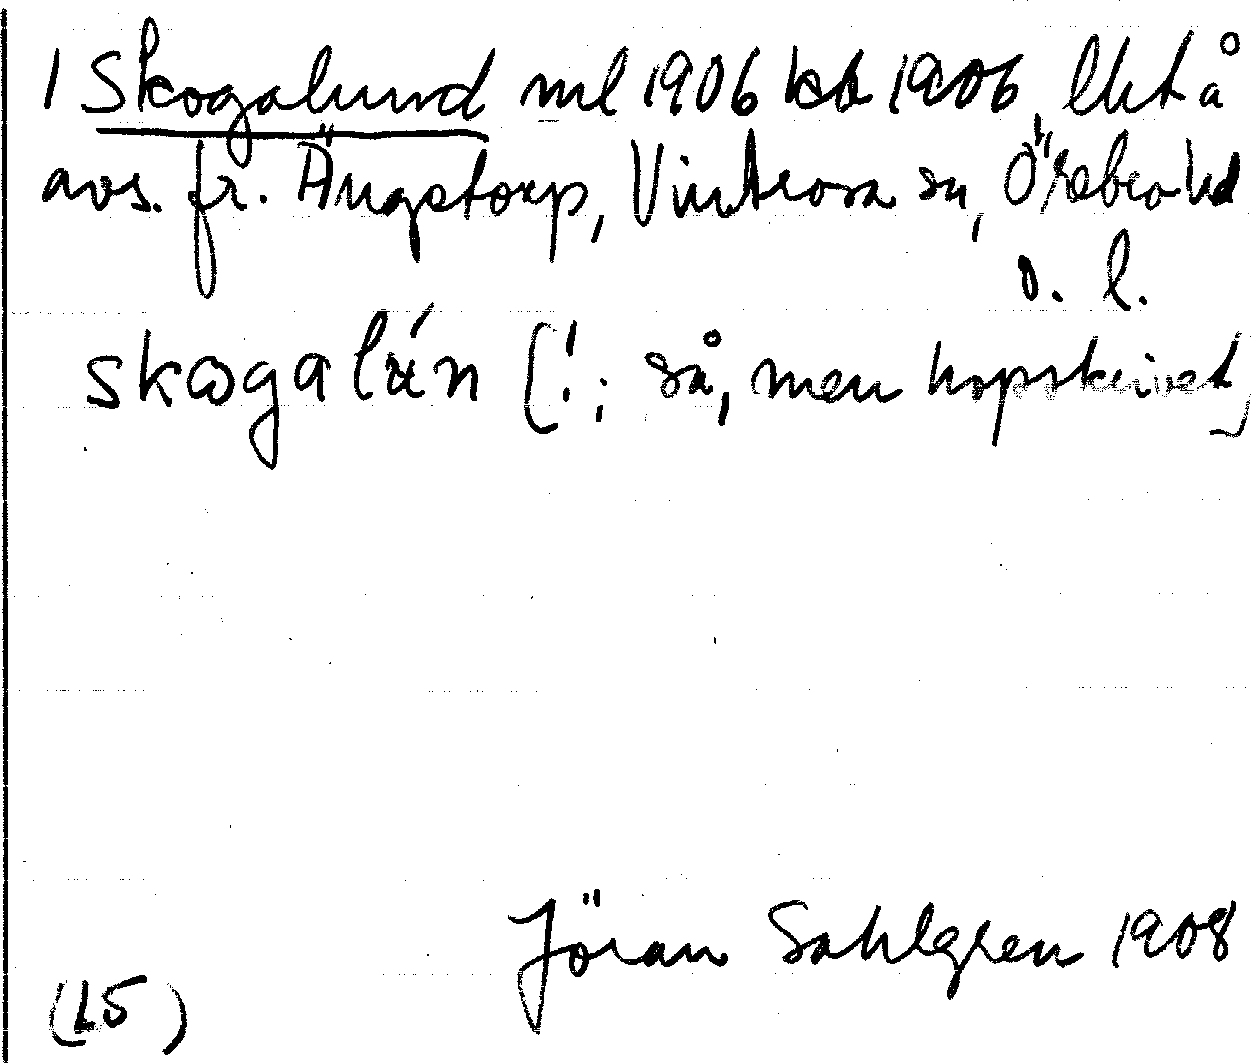 1 Skogalund ml 1906 kb 1906, lht å
avs. fr. Ängstorp, Vintrosa sn, Örebro hd
o. l.
skogalún [!; så, men hopskrivet]
Jöran Sahlgren 1908
(15)